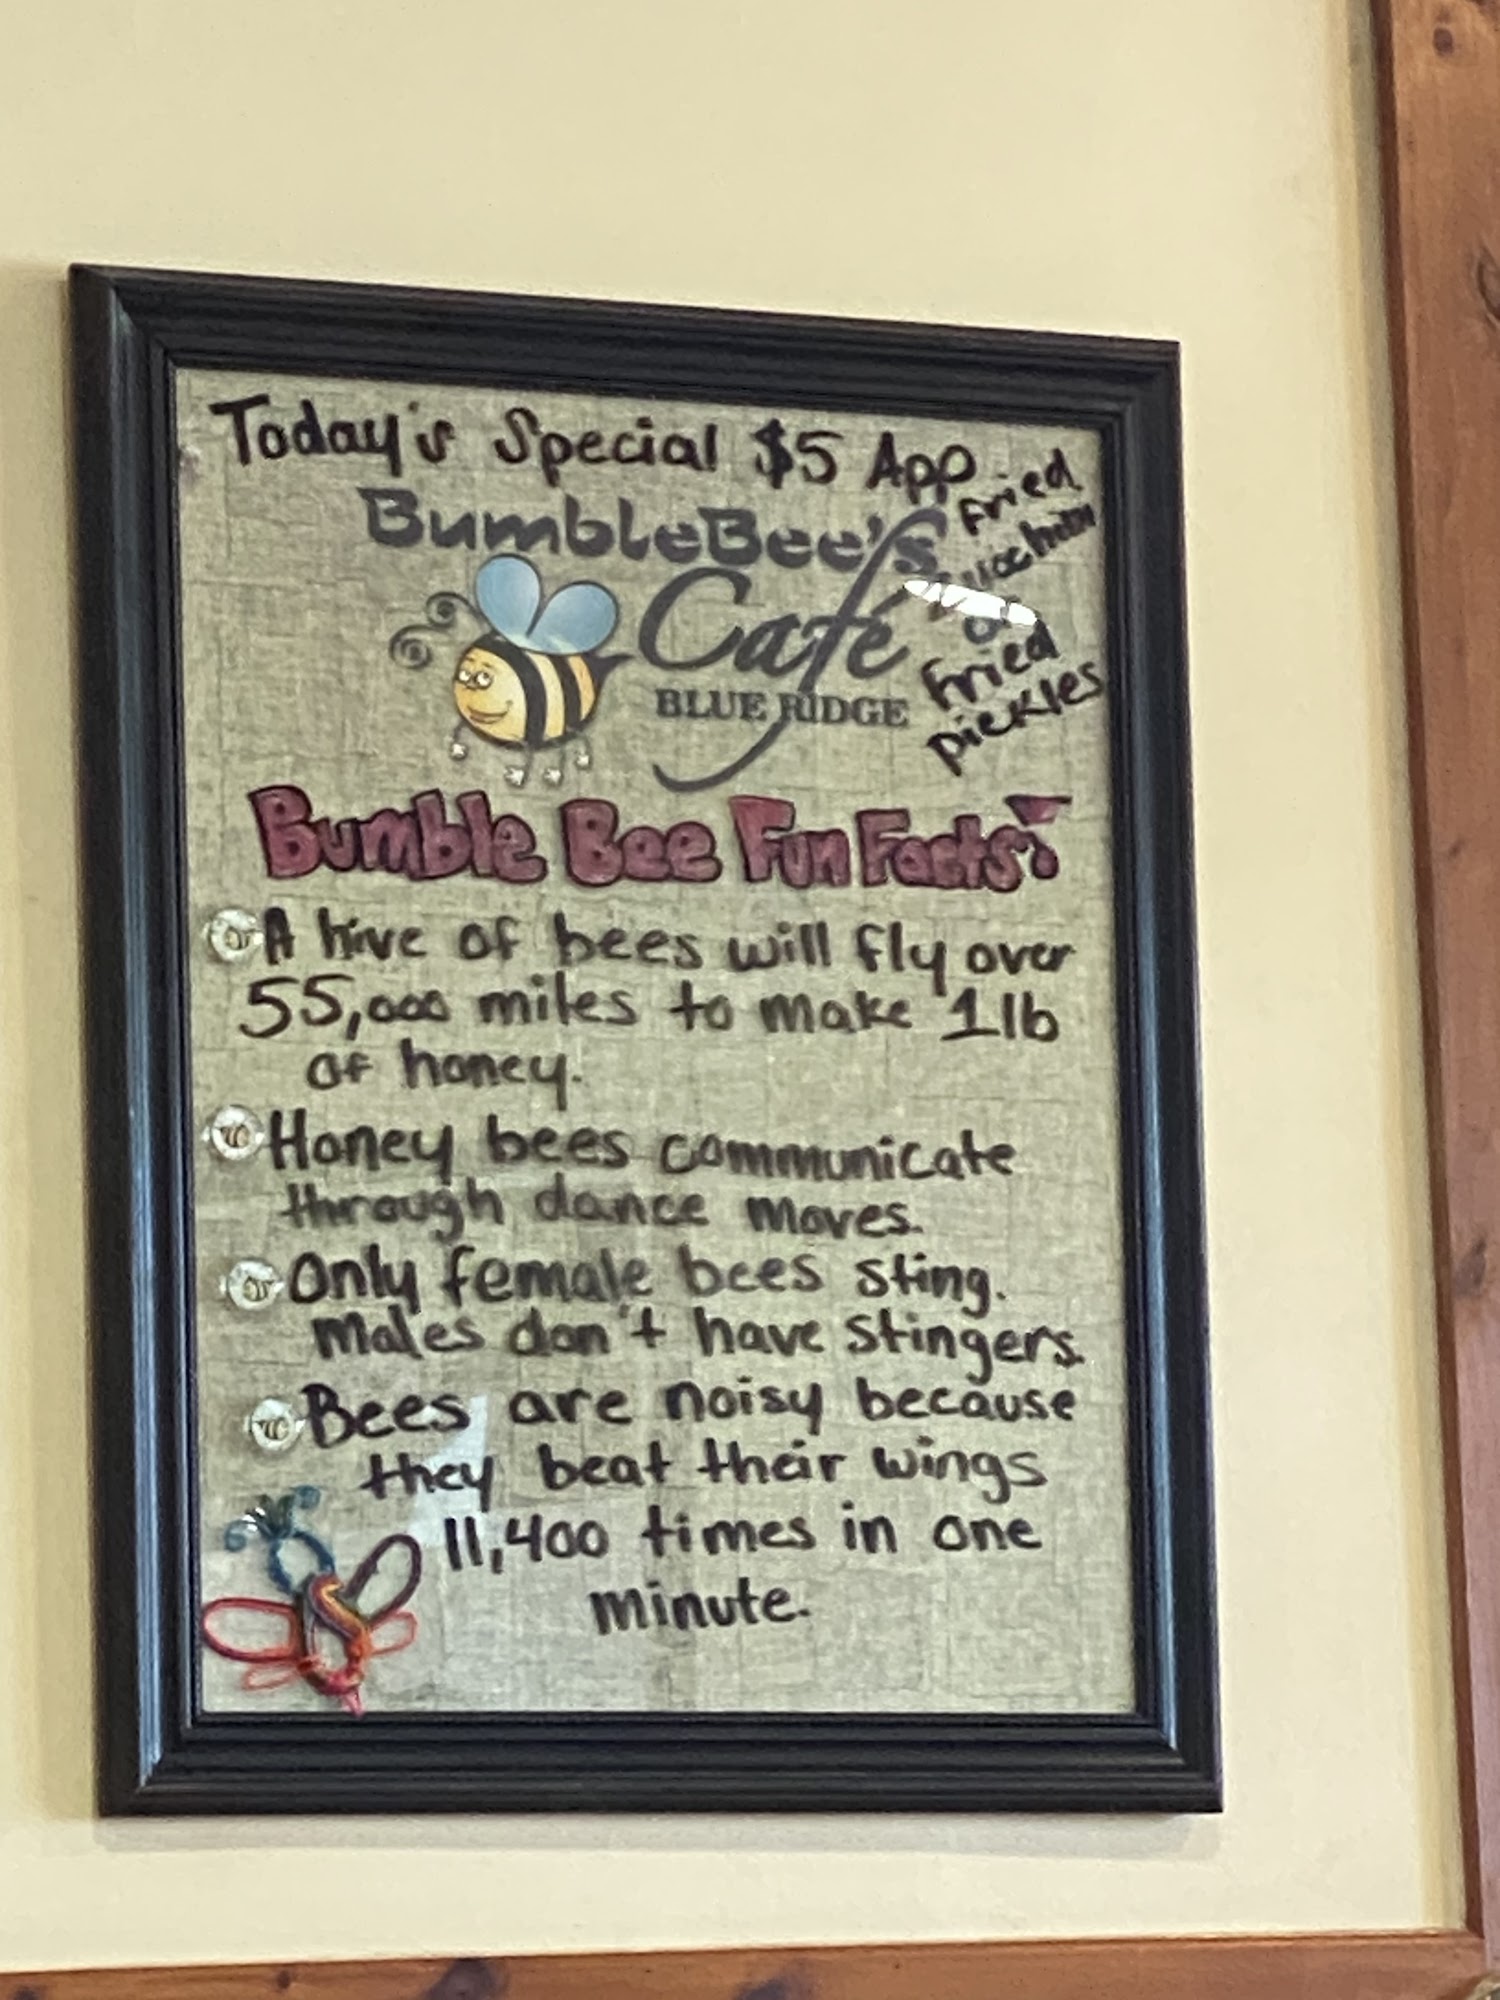 Today's Special $5 App
Fried
Zucchini
or
Fried
pickles
BumbleBee's
Café
BLUE RIDGE
Bumble Bee Fun Facts!
A hive of bees will fly over
55,000 miles to make 1lb
of honey.
Honey bees communicate
through dance moves.
Only female bees sting.
Males don't have stingers.
Bees are noisy because
they beat their wings
11,400 times in one
minute.